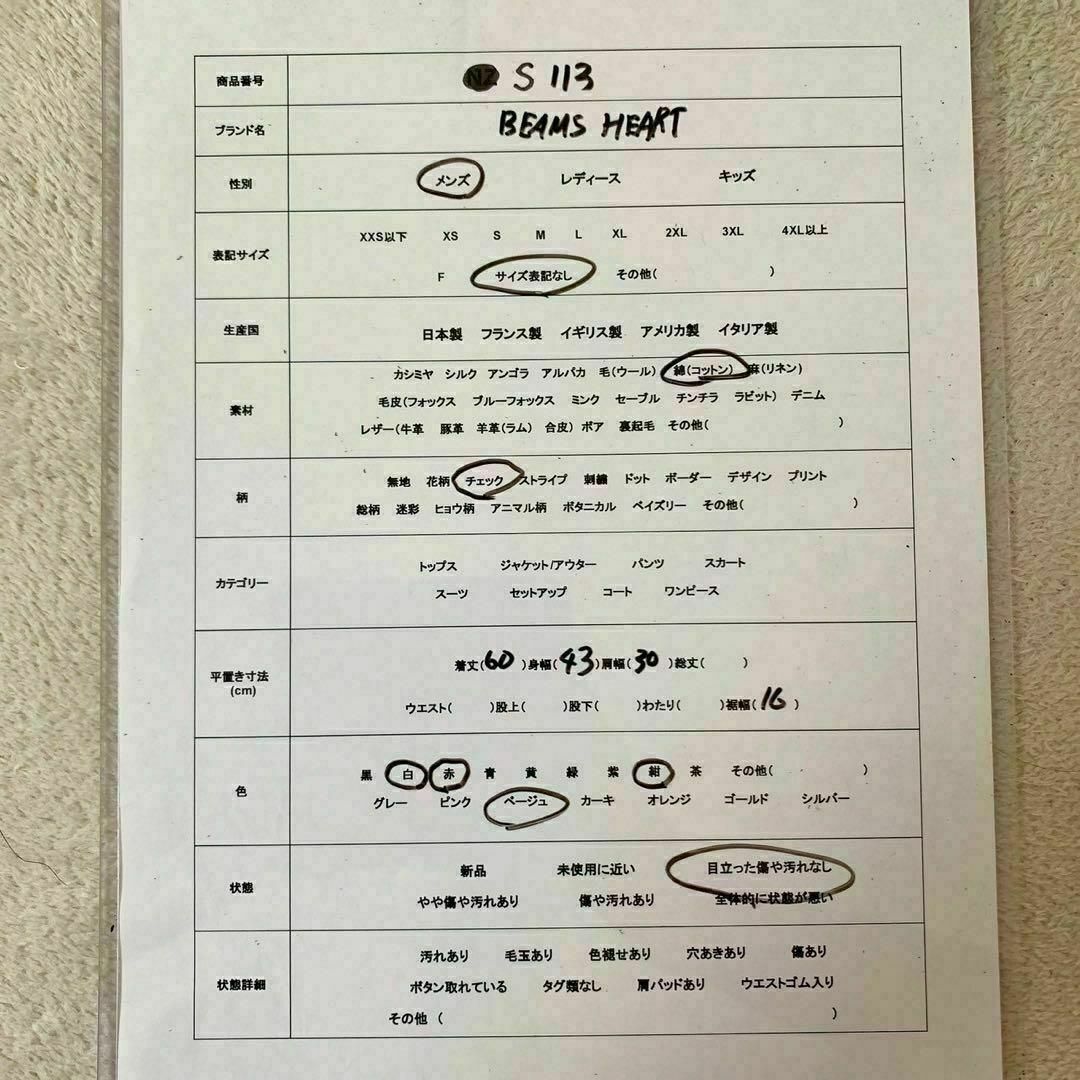 商品番号 NZ S 113
ブランド名 BEAMS HEART
性別 メンズ レディース キッズ
表記サイズ
XXS以下 XS S M L XL 2XL 3XL 4XL以上
F サイズ表記なし その他( )
生産国 日本製 フランス製 イギリス製 アメリカ製 イタリア製
素材
カシミヤ シルク アンゴラ アルパカ 毛(ウール) 綿(コットン) 麻(リネン)
毛皮(フォックス ブルーフォックス ミンク セーブル チンチラ ラビット) デニム
レザー(牛革 豚革 羊革(ラム) 合皮) ボア 裏起毛 その他( )
柄
無地 花柄 チェック ストライプ 刺繍 ドット ボーダー デザイン プリント
総柄 迷彩 ヒョウ柄 アニマル柄 ボタニカル ペイズリー その他( )
カテゴリー
トップス ジャケット/アウター パンツ スカート
スーツ セットアップ コート ワンピース
平置き寸法
(cm)
着丈(60)身幅(43)肩幅(30)総丈( )
ウエスト( )股上( )股下( )わたり( )裾幅(16)
色
黒 白 赤 青 黄 緑 紫 紺 茶 その他( )
グレー ピンク ベージュ カーキ オレンジ ゴールド シルバー
状態
新品 未使用に近い 目立った傷や汚れなし
やや傷や汚れあり 傷や汚れあり 全体的に状態が悪い
状態詳細
汚れあり 毛玉あり 色褪せあり 穴あきあり 傷あり
ボタン取れている タグ類なし 肩パッドあり ウエストゴム入り
その他 ( )